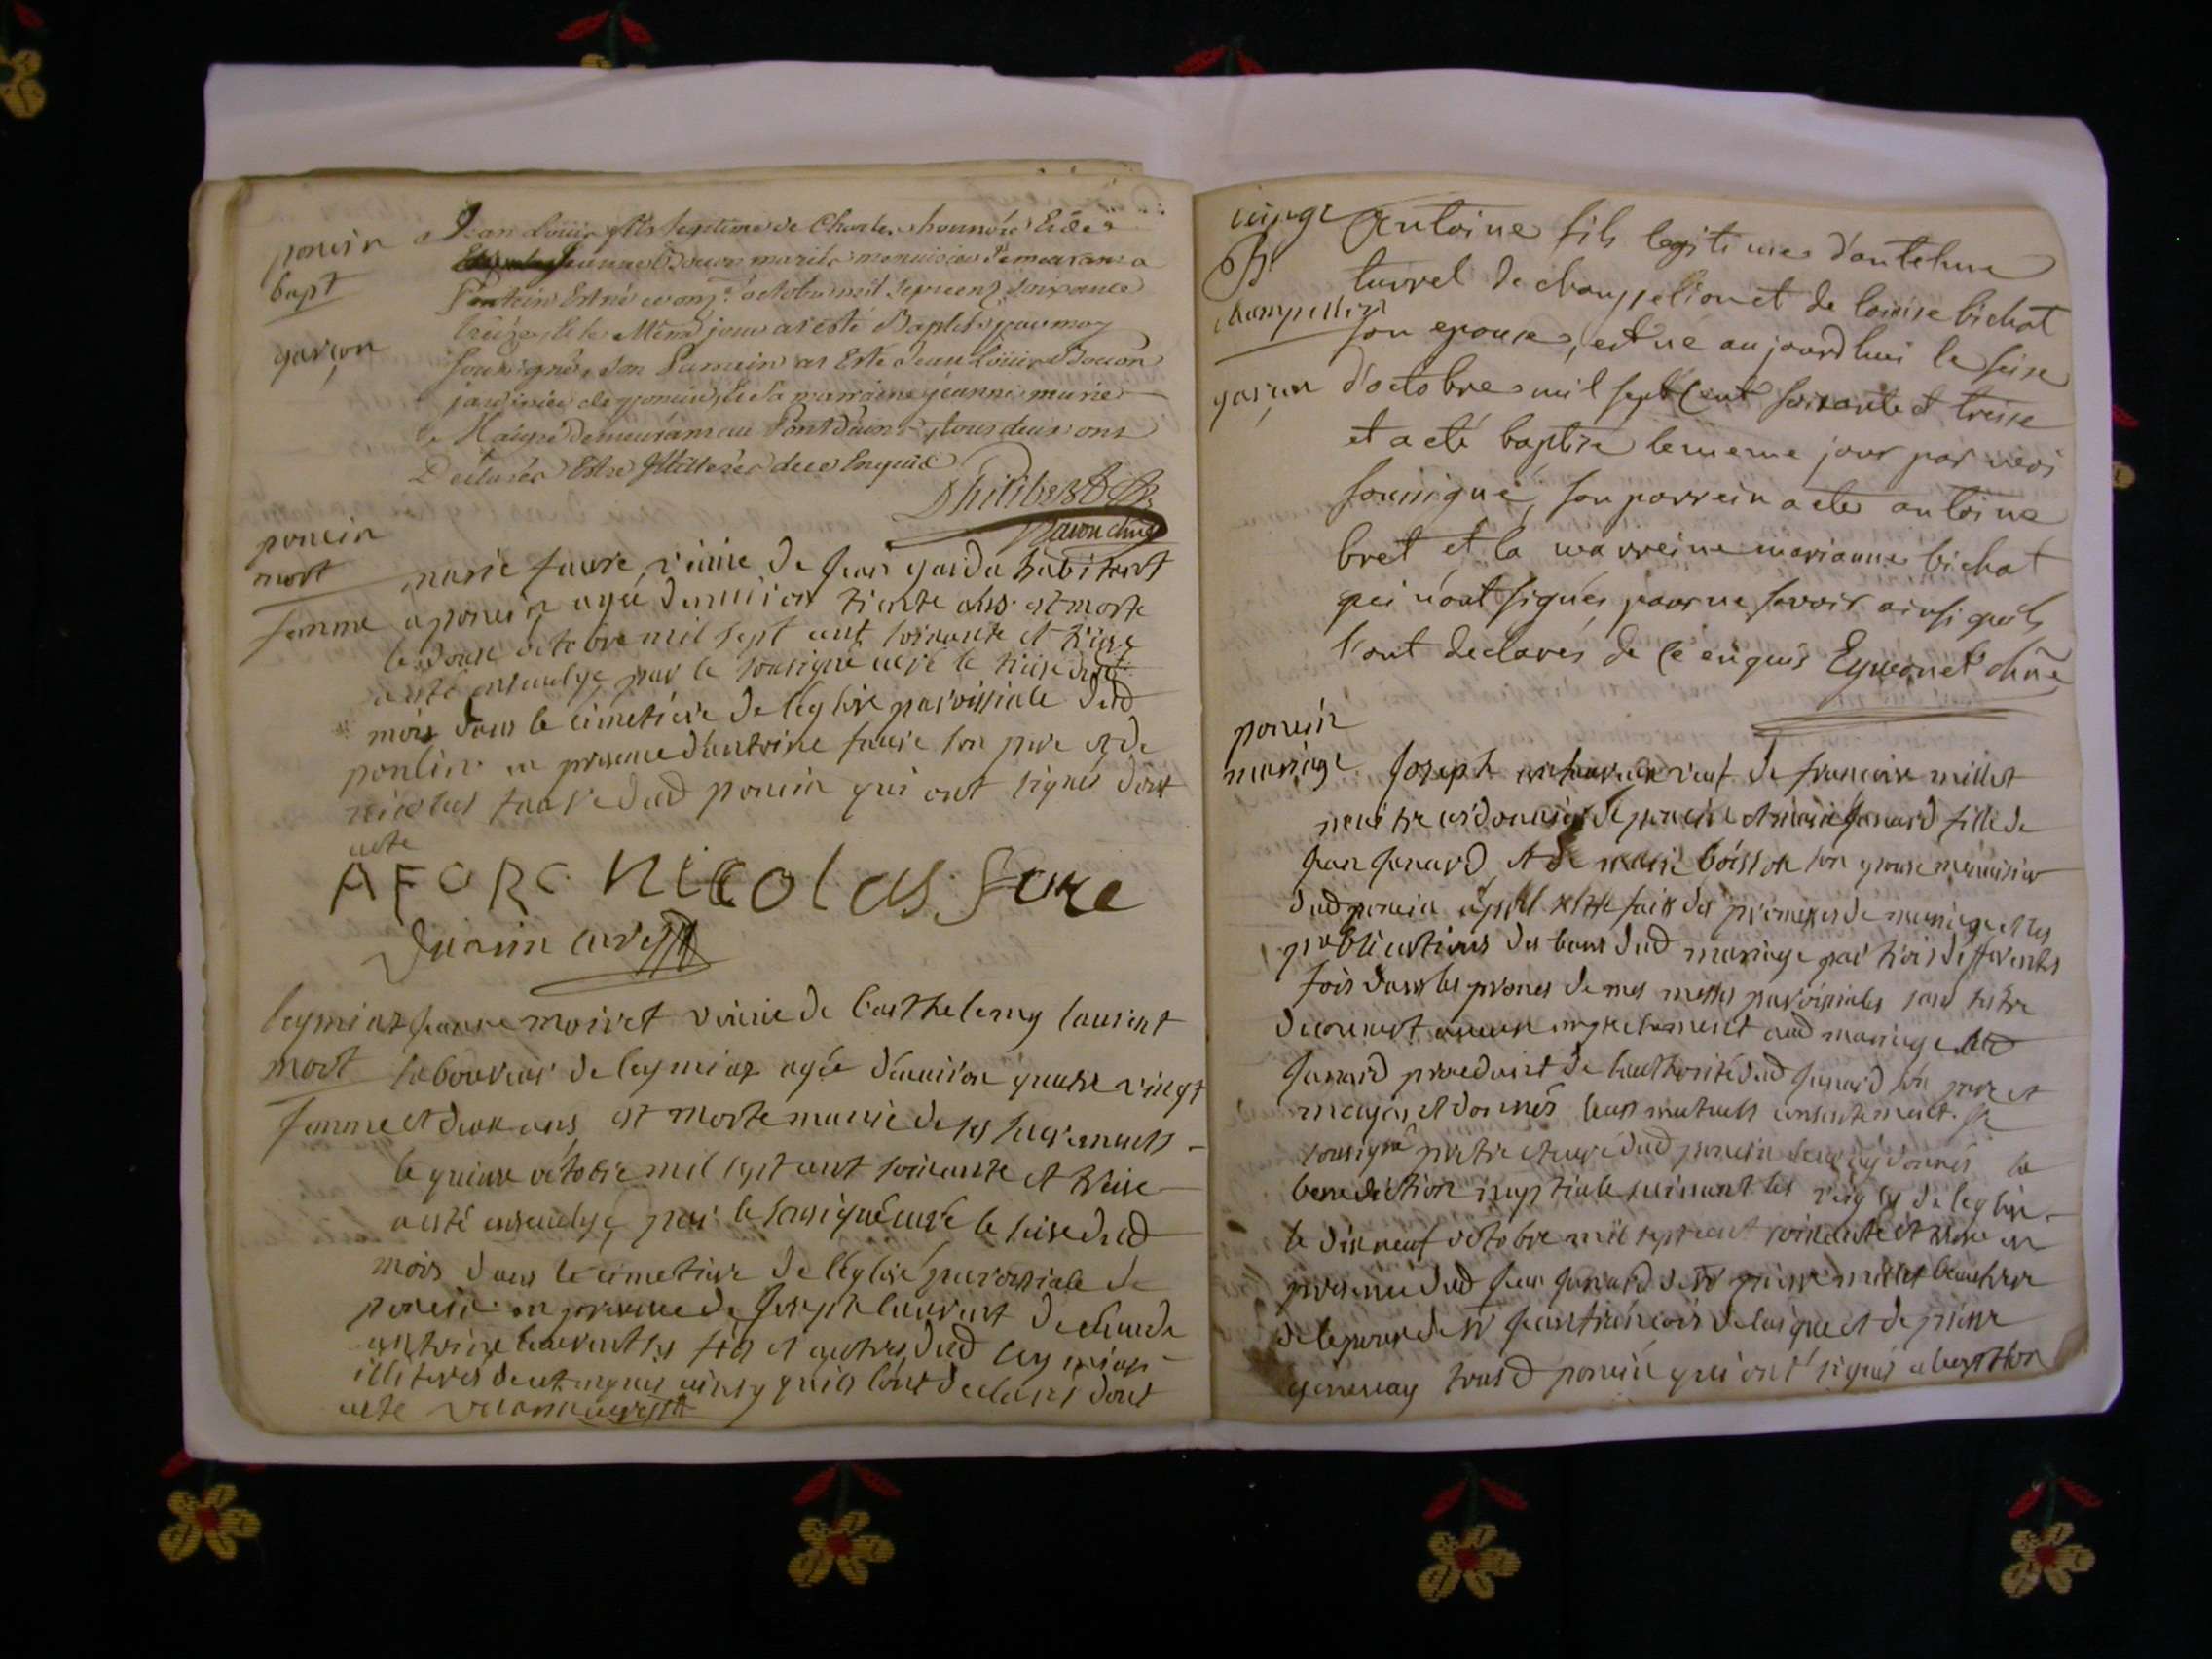 poncin
bapt
garçon
Jean Louis fils legitime de Charles honnoré
Jeanne Bocon mariés menuisier demeurant a
Poncin Est né ce onze octobre mil sept cent soixante
treize, et le Même jour at esté Baptisé par moy
soussigné, son Parrain at Esté Jean Louis Bocon
jardinier de poncin, Et sa marraine jeanne marie
demeurant au Pont d'ain, tous deux ons
Declarés Estre illiterés de ce Enquis
Philibert
poncin
mort
femme
marie faure, veuve de Jean garda habitant
a poncin agée d'environ trente ans est morte
le douse octobre mil sept cent soixante et treize
a esté ensevelye, par le sousigné curé le treise dud
mois dans le cimetiere de leglise paroissiale dud
poncin en presence d'antoine faure son pere et de
nicolas faure dud poncin qui ont signés dont
acte
AFORC NICOLAS fore
curé
leymiaz
mort
femme
jeanne moiret veuve de barthelemy laurent
laboureur de leymiaz agée d'environ quatre vingt
et deux ans, est morte munie de ses sacrements
le quinse octobre mil sept cent soixante et treise
a esté ensevelye, par le sousigné curé le seise dud
mois dans le cimetiere de l'eglise paroissiale de
poncin en presence de Joseph laurent de claude
antoine laurent ses fils et autres dud leymiaz
illiterés de ce enquis ainsy quils l'ont declarés dont
acte
champellion
garçon
Antoine fils legitime d'antelme
turrel de champelion et de louise bichat
son epouse, est né aujourdhui le seise
d'octobre mil sept Cent soixante et treise
et a eté baptisé le meme jour par moi
soussigné, son parrein a eté antoine
bret et la marreine marianne bichat
qui n'ont signés pour ne savoir ainsi quils
l'ont declarés de Ce enquis
poncin
mariage
Joseph veuf de francoise millet
maitre cordonnier de poncin et marie Janard fille de
Jean Janard et de marie boisson son epouse menuisier
dud poncin après sestre faits des promesses de mariage et les
publications des bans dud mariage par trois differentes
fois dans les prones de mes messes paroissiales sans sestre
decouvert aucun empechement aud mariage lad
Janard procedant de lauthorité dud Janard son pere et
mayor et donnés leurs mutuels consentement. Je
sousigné pretre et curé dud poncin leur ay donnés la
benediction nuptiale suivant les regles de leglise
le dixneuf octobre mil sept cent soixante et treise en
presence dud Jean Janard de sr pierre millet
de sr Jean francois et de pierre
tous d poncin qui ont signés